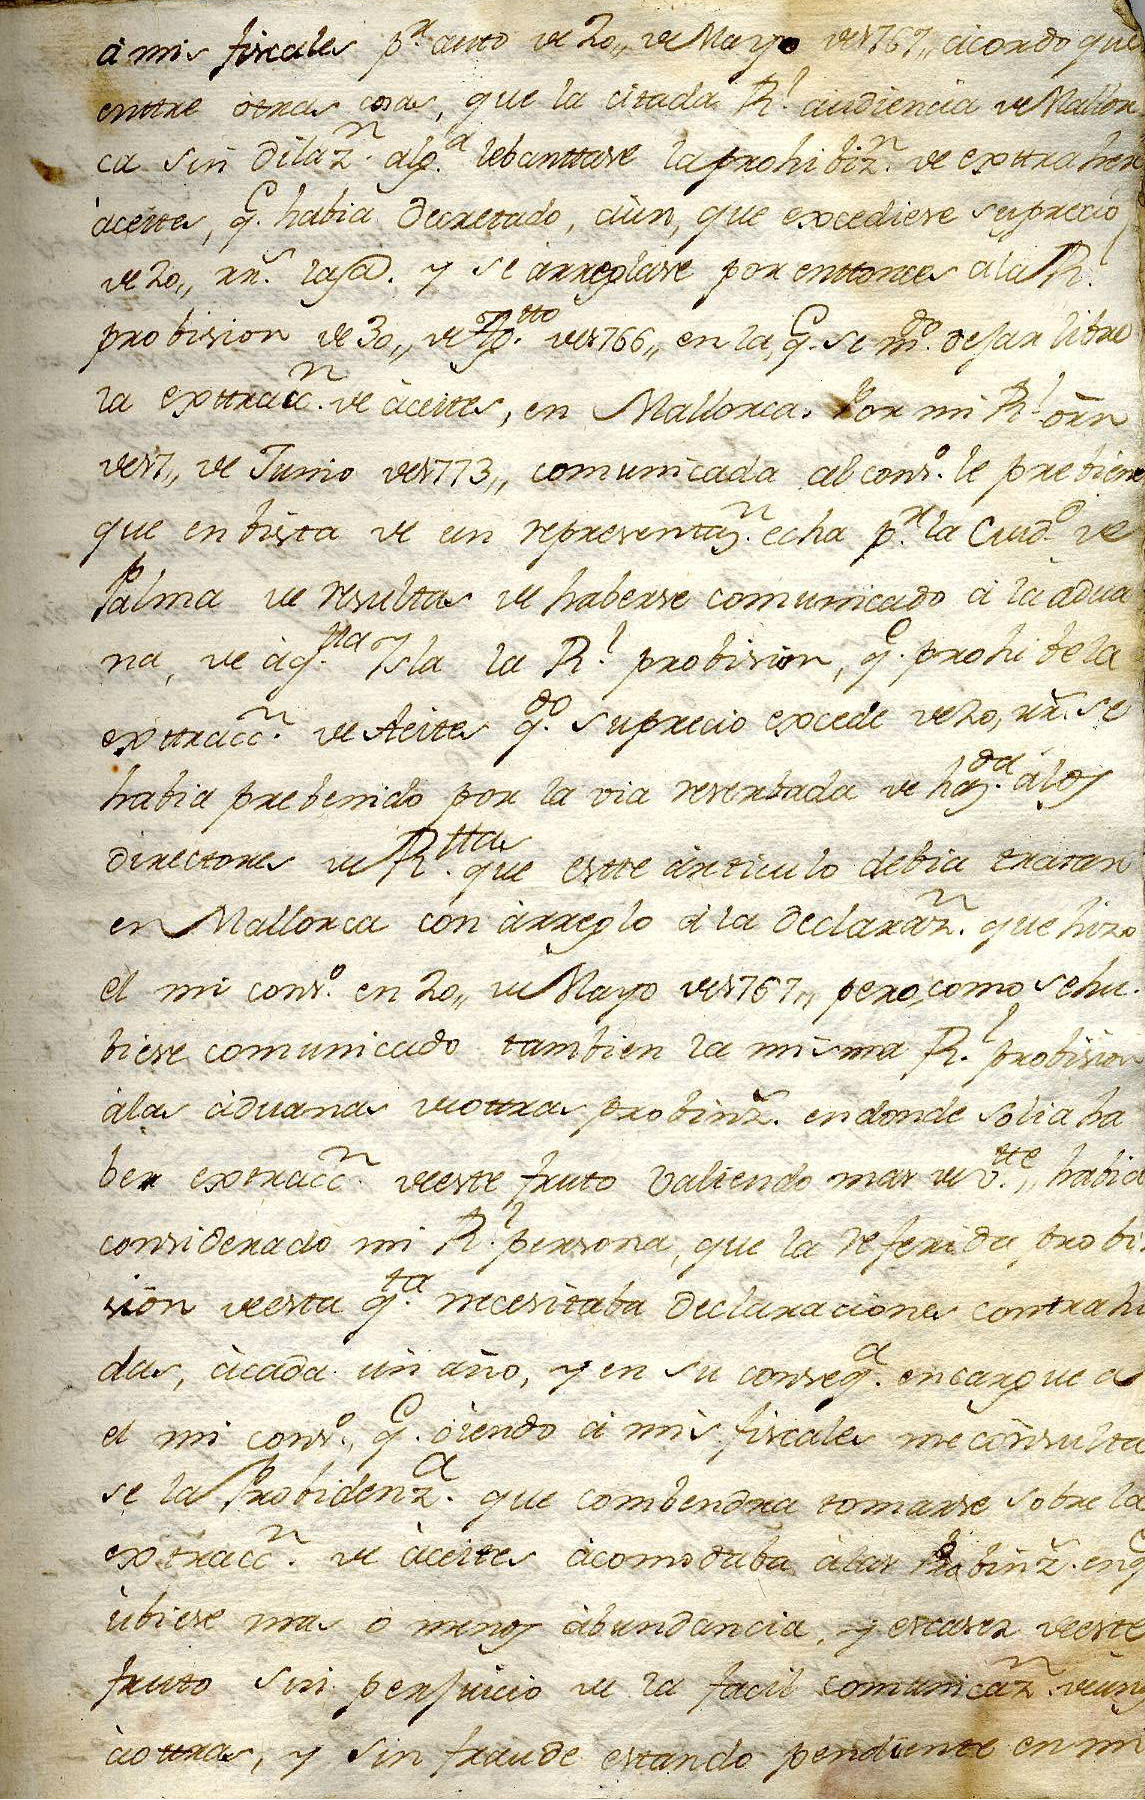 à mis fiscales pr. auto de 20,, de Mayo de 1767,, acordo que
enttre otras cosas, que la citada Rl. audiencia de Mallor
ca sin dilazn. alga. lebanttase la prohibizn. de exttraher
aceites, q. habia decretado, aùn, que excediese su precio
de 20,, rrs. la @. y se arreglase por enttonces a la Rl.
probision de 30,, de Agtto. de 1766,, en la, q. se mdo. dejar libre
la exttraccn. de àceites, en Mallorca. Por mi Rl. orn
de 17,, de Junio de 1773,, comunicada al conso. le prebiene
que en bista de un representazn. echa pr. la Ciudd. de
Palma de resultas de haberse comunicado à la adua
na, de àqlla. Ysla la Rl. probision, q. prohibe la
exttraccn. de Aeites qdo. su precio excede de 20, rrs. se
habia prebenido por la via reserbada de hazda. àlos
directores de Rttas. que estte àrticulo debia tratar
en Mallorca con àrreglo à la declarazn. que hizo
el mi conso. en 20,, de Mayo de 1767,, pero, como se hu.
biese comunicado tambien la misma Rl. probision
àlas àduanas de ottras probinz. en donde solia ha
ber extraccn. de este fruto baliendo mas de vtte., habia
considerado mi Rl. persona, que la referida probi.
sion de esta qta. necesitaba declaraciones contrahi
das, àcada ùn año, y en su conseqa. encargue a
el mi conso., q. oiendo à mis fiscales me consulta
se la Probidenza. que combendra tomarse sobre la
extraccn. de àceites àcomodaba àlas Probinz. en q
ubiese mas ò menos àbundancia, y escasez de este
fruto sin perjuicio de la facil comunicazn. de unas
àottras, y sin fraude estando pendiente en mi